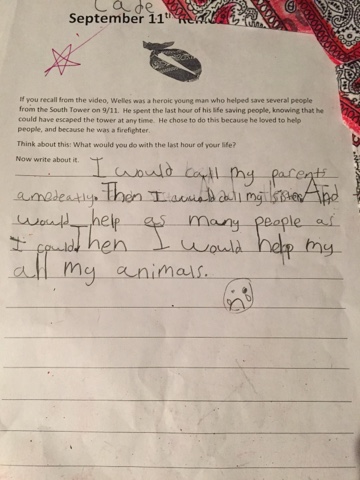 Cade
September 11th
If you recall from the video, Welles was a heroic young man who helped save several people
from the South Tower on 9/11. He spent the last hour of his life saving people, knowing that he
could have escaped the tower at any time. He chose to do this because he loved to help
people, and because he was a firefighter.
Think about this: What would you do with the last hour of your life?
Now write about it.
I would call my parents
amedeatly. Then I would call my sister. And
would help as many people as
I could. Then I would help my
all my animals.